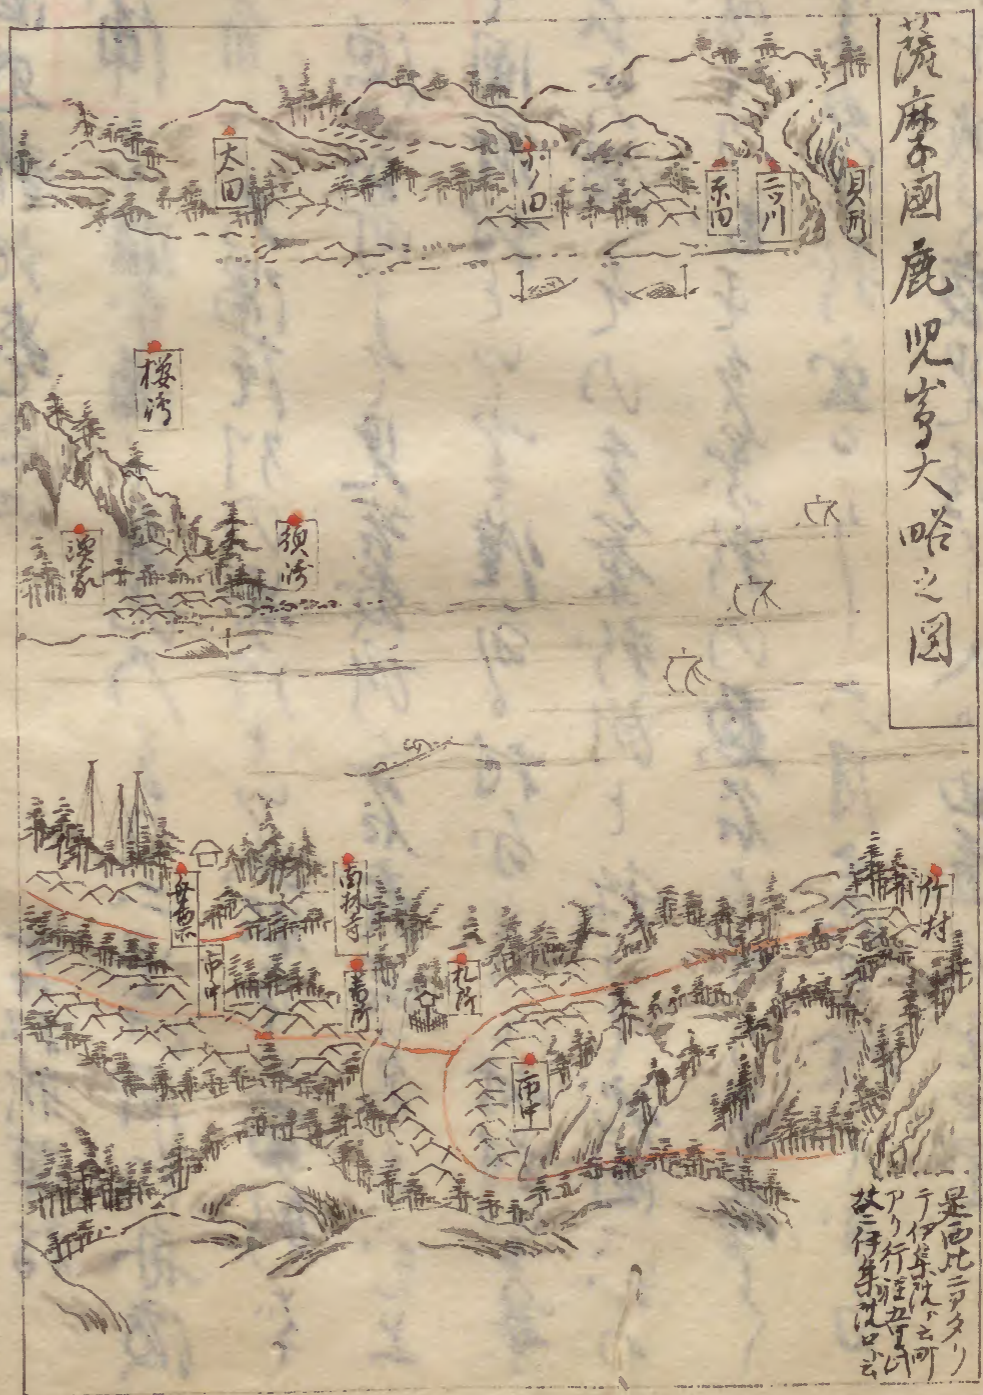 薩摩國鹿児嶌大畧之図
貝形
二ッ川
糸田
小ノ田
太田
桜嶋
須嶋
漁家
竹村
南林寺
札所
番所
市中
市中
是西北ニアタリ
テ伊集院ト云町
アリ行程五里
故ニ伊集院口ト云